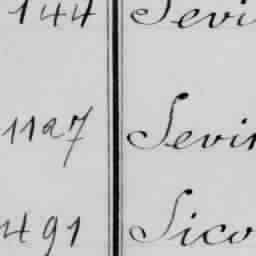 144 Sevi
1127 Sevir
491 Sico